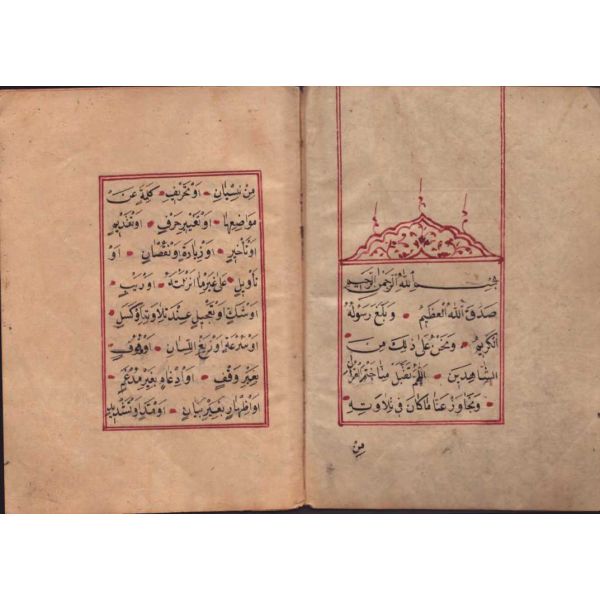 بسم الله الرحمن الرحيم
صدق الله العظيم وبلغ رسوله
الكريم ونحن على ذلك من
الشاهدين اللهم تقبل منا ختم القرآن
وتجاوز عنا ما كان في تلاوته
من
من نسيان او تحريف كلمة عن
مواضعها او تغيير حرف او تقديم
او تأخير او زيادة او نقصان او
تأويل على غير ما انزلته او ريب
او شك او تعجيل عند تلاوته او كسل
او سرعة او زيغ اللسان او وقف
بغير وقف او ادغام بغير مدغم
او اظهار بغير بيان او مد او تشديد